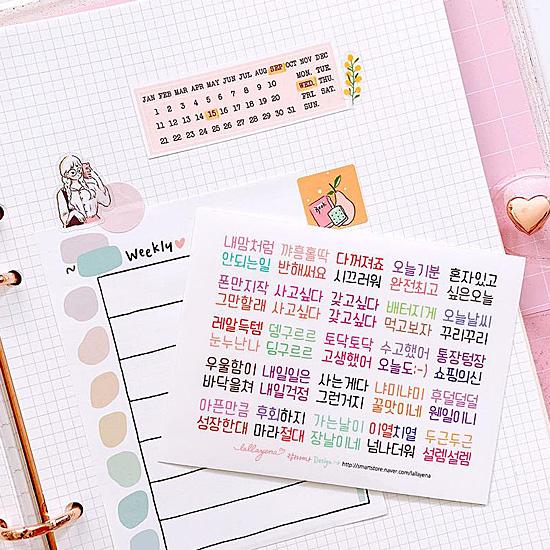 JAN FEB MAR APR MAY JUN JUL AUG SEP OCT NOV DEC
1 2 3 4 5 6 7 8 9 10 MON. TUE.
11 12 13 14 15 16 17 18 19 20 WED. THU.
21 22 23 24 25 26 27 28 29 30 31 FRI. SAT.
SUN.
Weekly
내맘처럼 꺄흥홀딱 다꺼져죠 오늘기분 혼자있고
안되는일 반해써요 시끄러워 완전최고 싶은오늘
폰만지작 사고싶다 갖고싶다 배터지게 오늘날씨
그만할래 사고싶다 갖고싶다 먹고보자 꾸리꾸리
레알득템 뎅구르르 토닥토닥 수고했어 통장텅장
눈누난나 딩구르르 고생했어 오늘도:-) 쇼핑의신
우울함이 내일일은 사는게다 냐미냐미 후덜덜덜
바닥을쳐 내일걱정 그런거지 꿀맛이네 웬일이니
아픈만큼 후회하지 가는날이 이열치열 두근두근
성장한대 마라절대 장날이네 넘나더워 설렘설렘
lallayena Design http://smartstore.naver.com/lallayena